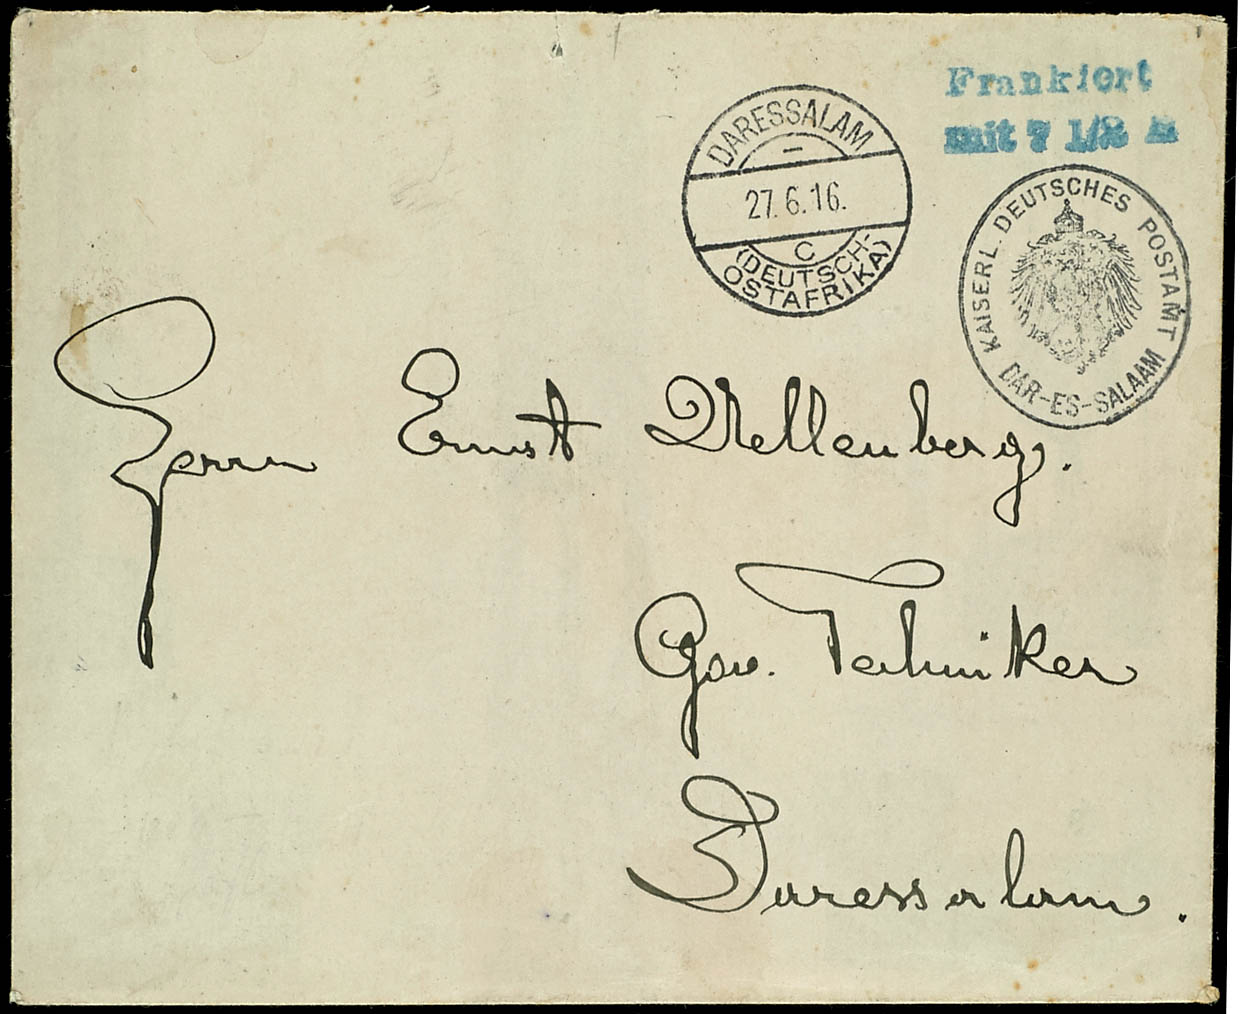 Frankiert
mit 7 1/2 H
DARESSALAM
27.6.16.
C
(DEUTSCH-
OSTAFRIKA)
KAISERL. DEUTSCHES POSTAMT
DAR-ES-SALAAM
Herrn Ernst Mellenberg.
Gouv. Techniker
Daressalam.